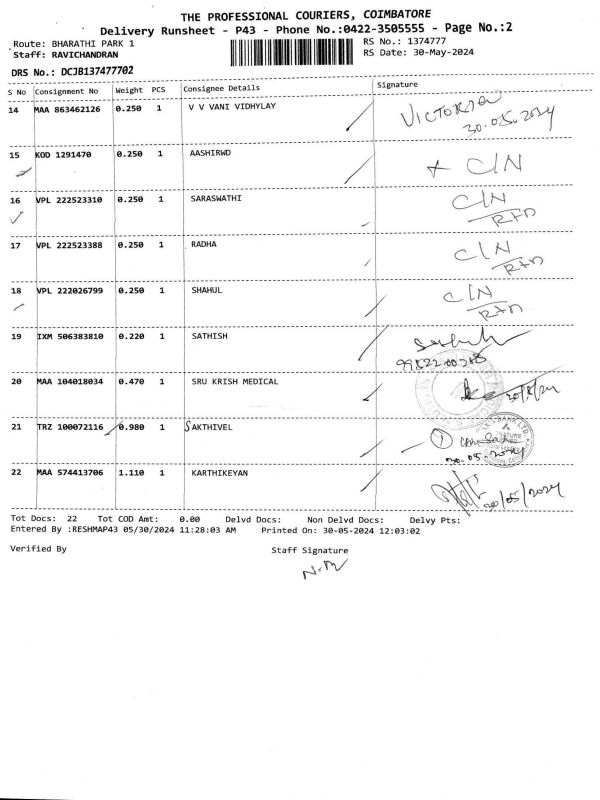 THE PROFESSIONAL COURIERS, COIMBATORE
Delivery Runsheet - P43 - Phone No.:0422-3505555 - Page No.:2
Route: BHARATHI PARK 1
RS No.: 1374777
Staff: RAVICHANDRAN
RS Date: 30-May-2024
DRS No.: DCJB137477702
S No Consignment No Weight PCS Consignee Details Signature
14 MAA 863462126 0.250 1 V V VANI VIDHYLAY VICTORIA
30.05.2024
15 KOD 1291470 0.250 1 AASHIRWD C/N
16 VPL 222523310 0.250 1 SARASWATHI C/N
RTD
17 VPL 222523388 0.250 1 RADHA C/N
RTD
18 VPL 222026799 0.250 1 SHAHUL C/N
RTD
19 IXM 506383810 0.220 1 SATHISH
20 MAA 104018034 0.470 1 SRU KRISH MEDICAL
21 TRZ 100072116 0.980 1 SAKTHIVEL 1
30.05.2024
22 MAA 574413706 1.110 1 KARTHIKEYAN
30/05/2024
Tot Docs: 22 Tot COD Amt: 0.00 Delvd Docs: Non Delvd Docs: Delvy Pts:
Entered By :RESHMAP43 05/30/2024 11:28:03 AM Printed On: 30-05-2024 12:03:02
Verified By Staff Signature